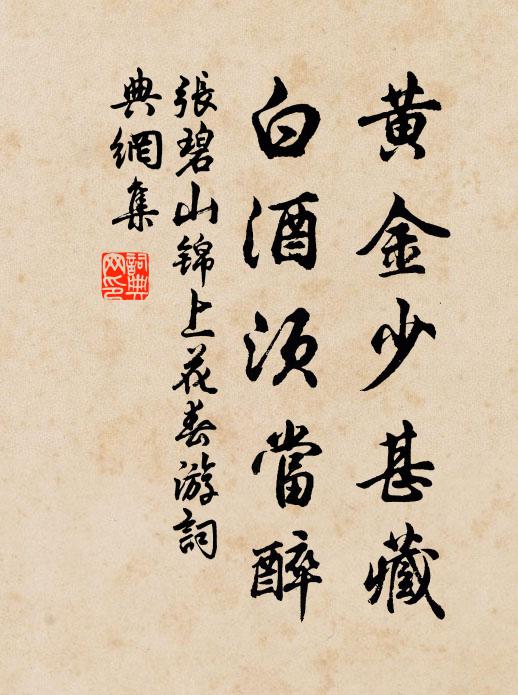 黄金少甚藏
白酒須當醉
張碧山錦上花春游詞
典網集
詞典网印